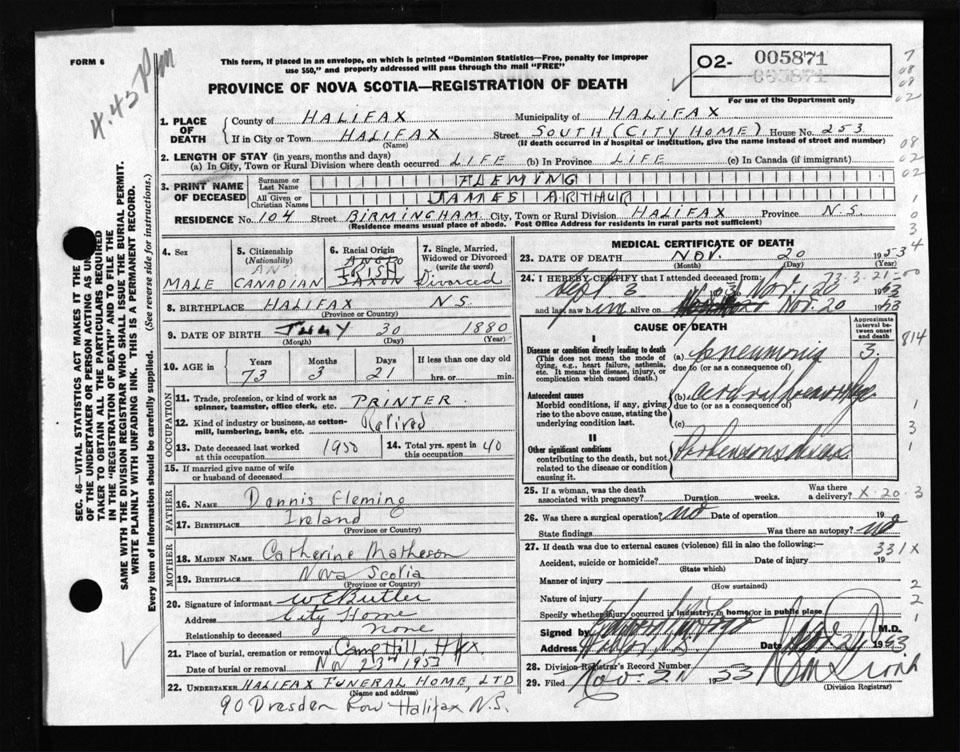 FORM 6
This form, if placed in an envelope, on which is printed "Dominion Statistics—Free, penalty for improper
use $50," and properly addressed will pass through the mail "FREE"
PROVINCE OF NOVA SCOTIA—REGISTRATION OF DEATH
O2- 005871
005871
For use of the Department only
4.45 Pm
1. PLACE OF DEATH
County of HALIFAX Municipality of HALIFAX
If in City or Town HALIFAX Street SOUTH (CITY HOME) House No. 253
(Name) (If death occurred in a hospital or institution, give the name instead of street and number)
2. LENGTH OF STAY (in years, months and days)
(a) In City, Town or Rural Division where death occurred LIFE (b) In Province LIFE (c) In Canada (if immigrant)
3. PRINT NAME OF DECEASED
Surname or Last Name FLEMING
All Given or Christian Names JAMES ARTHUR
RESIDENCE No. 104 Street BIRMINGHAM City, Town or Rural Division HALIFAX Province N.S.
(Residence means usual place of abode. Post Office Address for residents in rural parts not sufficient)
4. Sex MALE
5. Citizenship (Nationality) CANADIAN
6. Racial Origin ANGLO IRISH SAXON
7. Single, Married, Widowed or Divorced (write the word) Divorced
8. BIRTHPLACE HALIFAX N.S.
(Province or Country)
9. DATE OF BIRTH JULY 30 1880
(Month) (Day) (Year)
10. AGE in Years 73 Months 3 Days 21 If less than one day old hrs. or min.
OCCUPATION
11. Trade, profession, or kind of work as spinner, teamster, office clerk, etc. PRINTER.
12. Kind of industry or business, as cotton-mill, lumbering, bank, etc. Retired
13. Date deceased last worked at this occupation 1950
14. Total yrs. spent in this occupation 40
15. If married give name of wife or husband of deceased
FATHER
16. Name Dennis Fleming
17. Birthplace Ireland
(Province or Country)
MOTHER
18. Maiden Name Catherine Matheson
19. Birthplace Nova Scotia
(Province or Country)
20. Signature of informant W E Butler
Address City Home
Relationship to deceased none
21. Place of burial, cremation or removal Camp Hill, Hfx.
Date of burial or removal Nov 23rd 1953
22. Undertaker HALIFAX FUNERAL HOME, LTD
(Name and address)
90 Dresden Row Halifax N.S.
MEDICAL CERTIFICATE OF DEATH
23. DATE OF DEATH NOV. 20 1953
(Month) (Day) (Year)
24. I HEREBY CERTIFY that I attended deceased from: 73-3-21-00
Sept 3 1953 Nov. 20 1953
and last saw him alive on Nov. 20 1953
CAUSE OF DEATH
Approximate interval between onset and death
I
Disease or condition directly leading to death (a) Pneumonia 3.
(This does not mean the mode of dying, e.g., heart failure, asthenia, etc. It means the disease, injury, or complication which caused death.)
due to (or as a consequence of)
Antecedent causes
Morbid conditions, if any, giving rise to the above cause, stating the underlying condition last.
(b) Cerebral hemorrhage
due to (or as a consequence of)
(c)
II
Other significant conditions contributing to the death, but not related to the disease or condition causing it.
Parkensons disease
25. If a woman, was the death associated with pregnancy? Duration weeks. Was there a delivery? X-20-3
26. Was there a surgical operation? no Date of operation 19
State findings Was there an autopsy? no
27. If death was due to external causes (violence) fill in also the following:—
331X
Accident, suicide or homicide? Date of injury 19
(State which)
Manner of injury
(How sustained)
Nature of injury
Specify whether injury occurred in industry, in home, or in public place
Signed by M.D.
Address Halifax, N.S. Date Nov 21 1953
28. Division Registrar's Record Number
29. Filed Nov. 1953
(Division Registrar)
SEC. 46—VITAL STATISTICS ACT MAKES IT THE
OF THE UNDERTAKER OR PERSON ACTING AS UN
TAKER TO OBTAIN ALL THE PARTICULARS REQUIRED
IN THE "REGISTRATION OF DEATH" AND TO FILE THE
SAME WITH THE DIVISION REGISTRAR WHO SHALL ISSUE THE BURIAL PERMIT.
WRITE PLAINLY WITH UNFADING INK. THIS IS A PERMANENT RECORD.
Every item of Information should be carefully supplied. (See reverse side for instructions.)
7
08
08
02
08
02
02
1
0
3
4
814
1
3
1
2
2
1